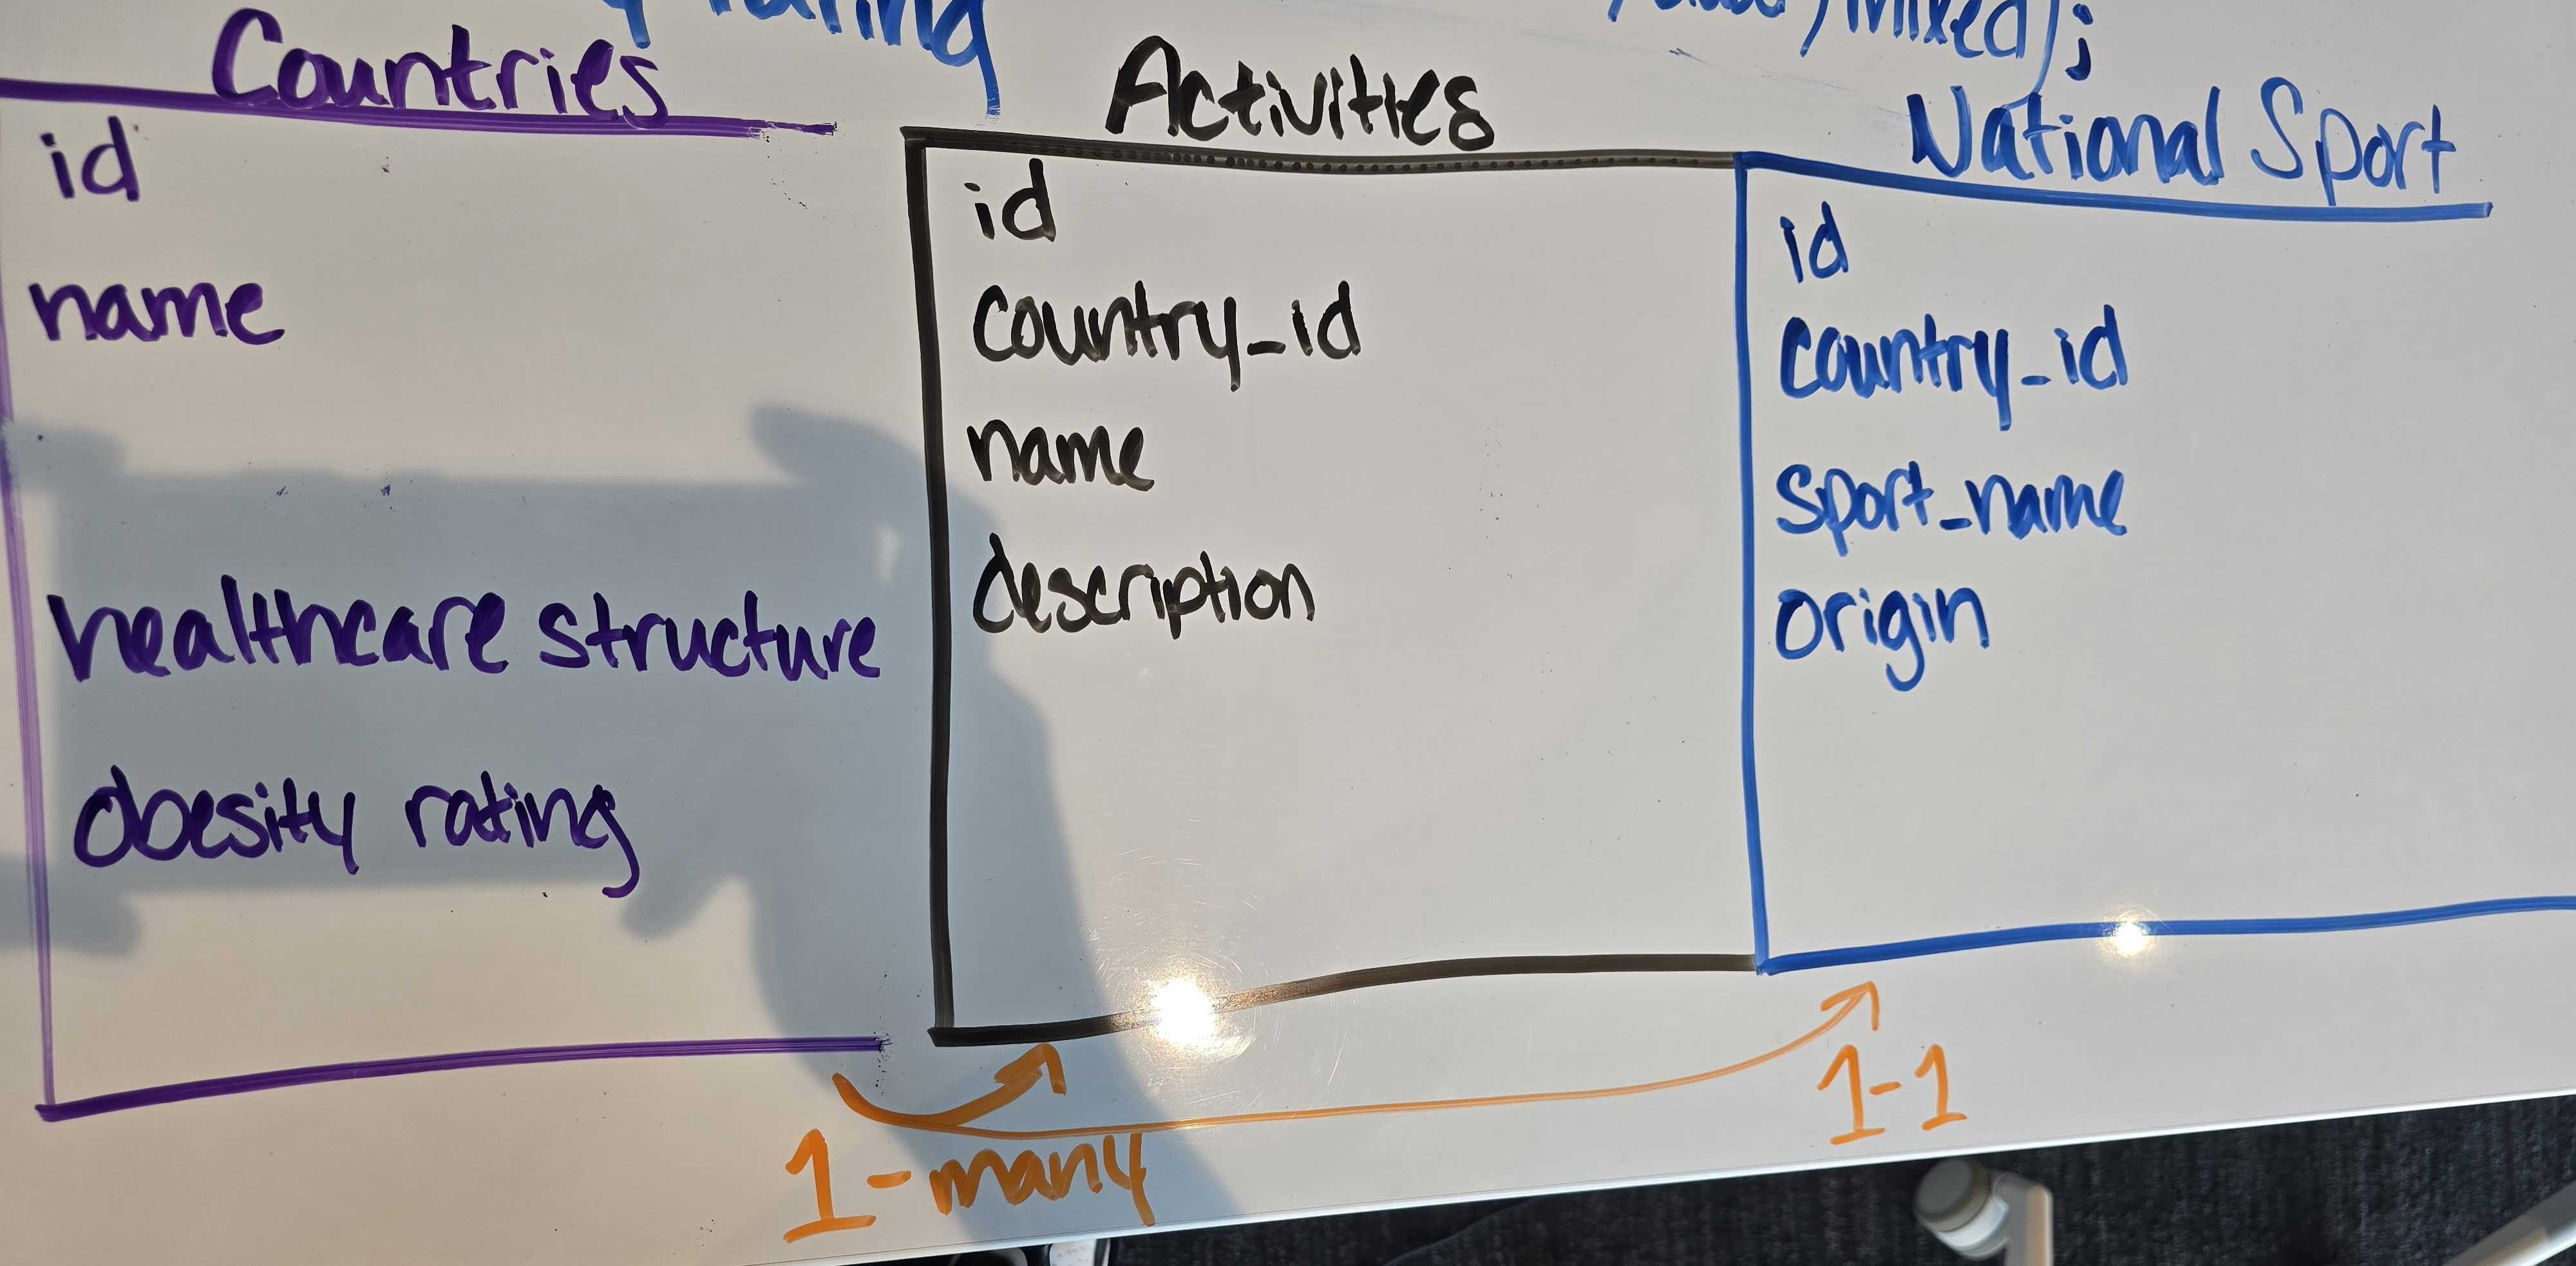 rating
mixed);
Countries
id
name
healthcare structure
obesity rating
Activities
id
country_id
name
description
National Sport
id
country_id
sport_name
origin
1-many
1-1